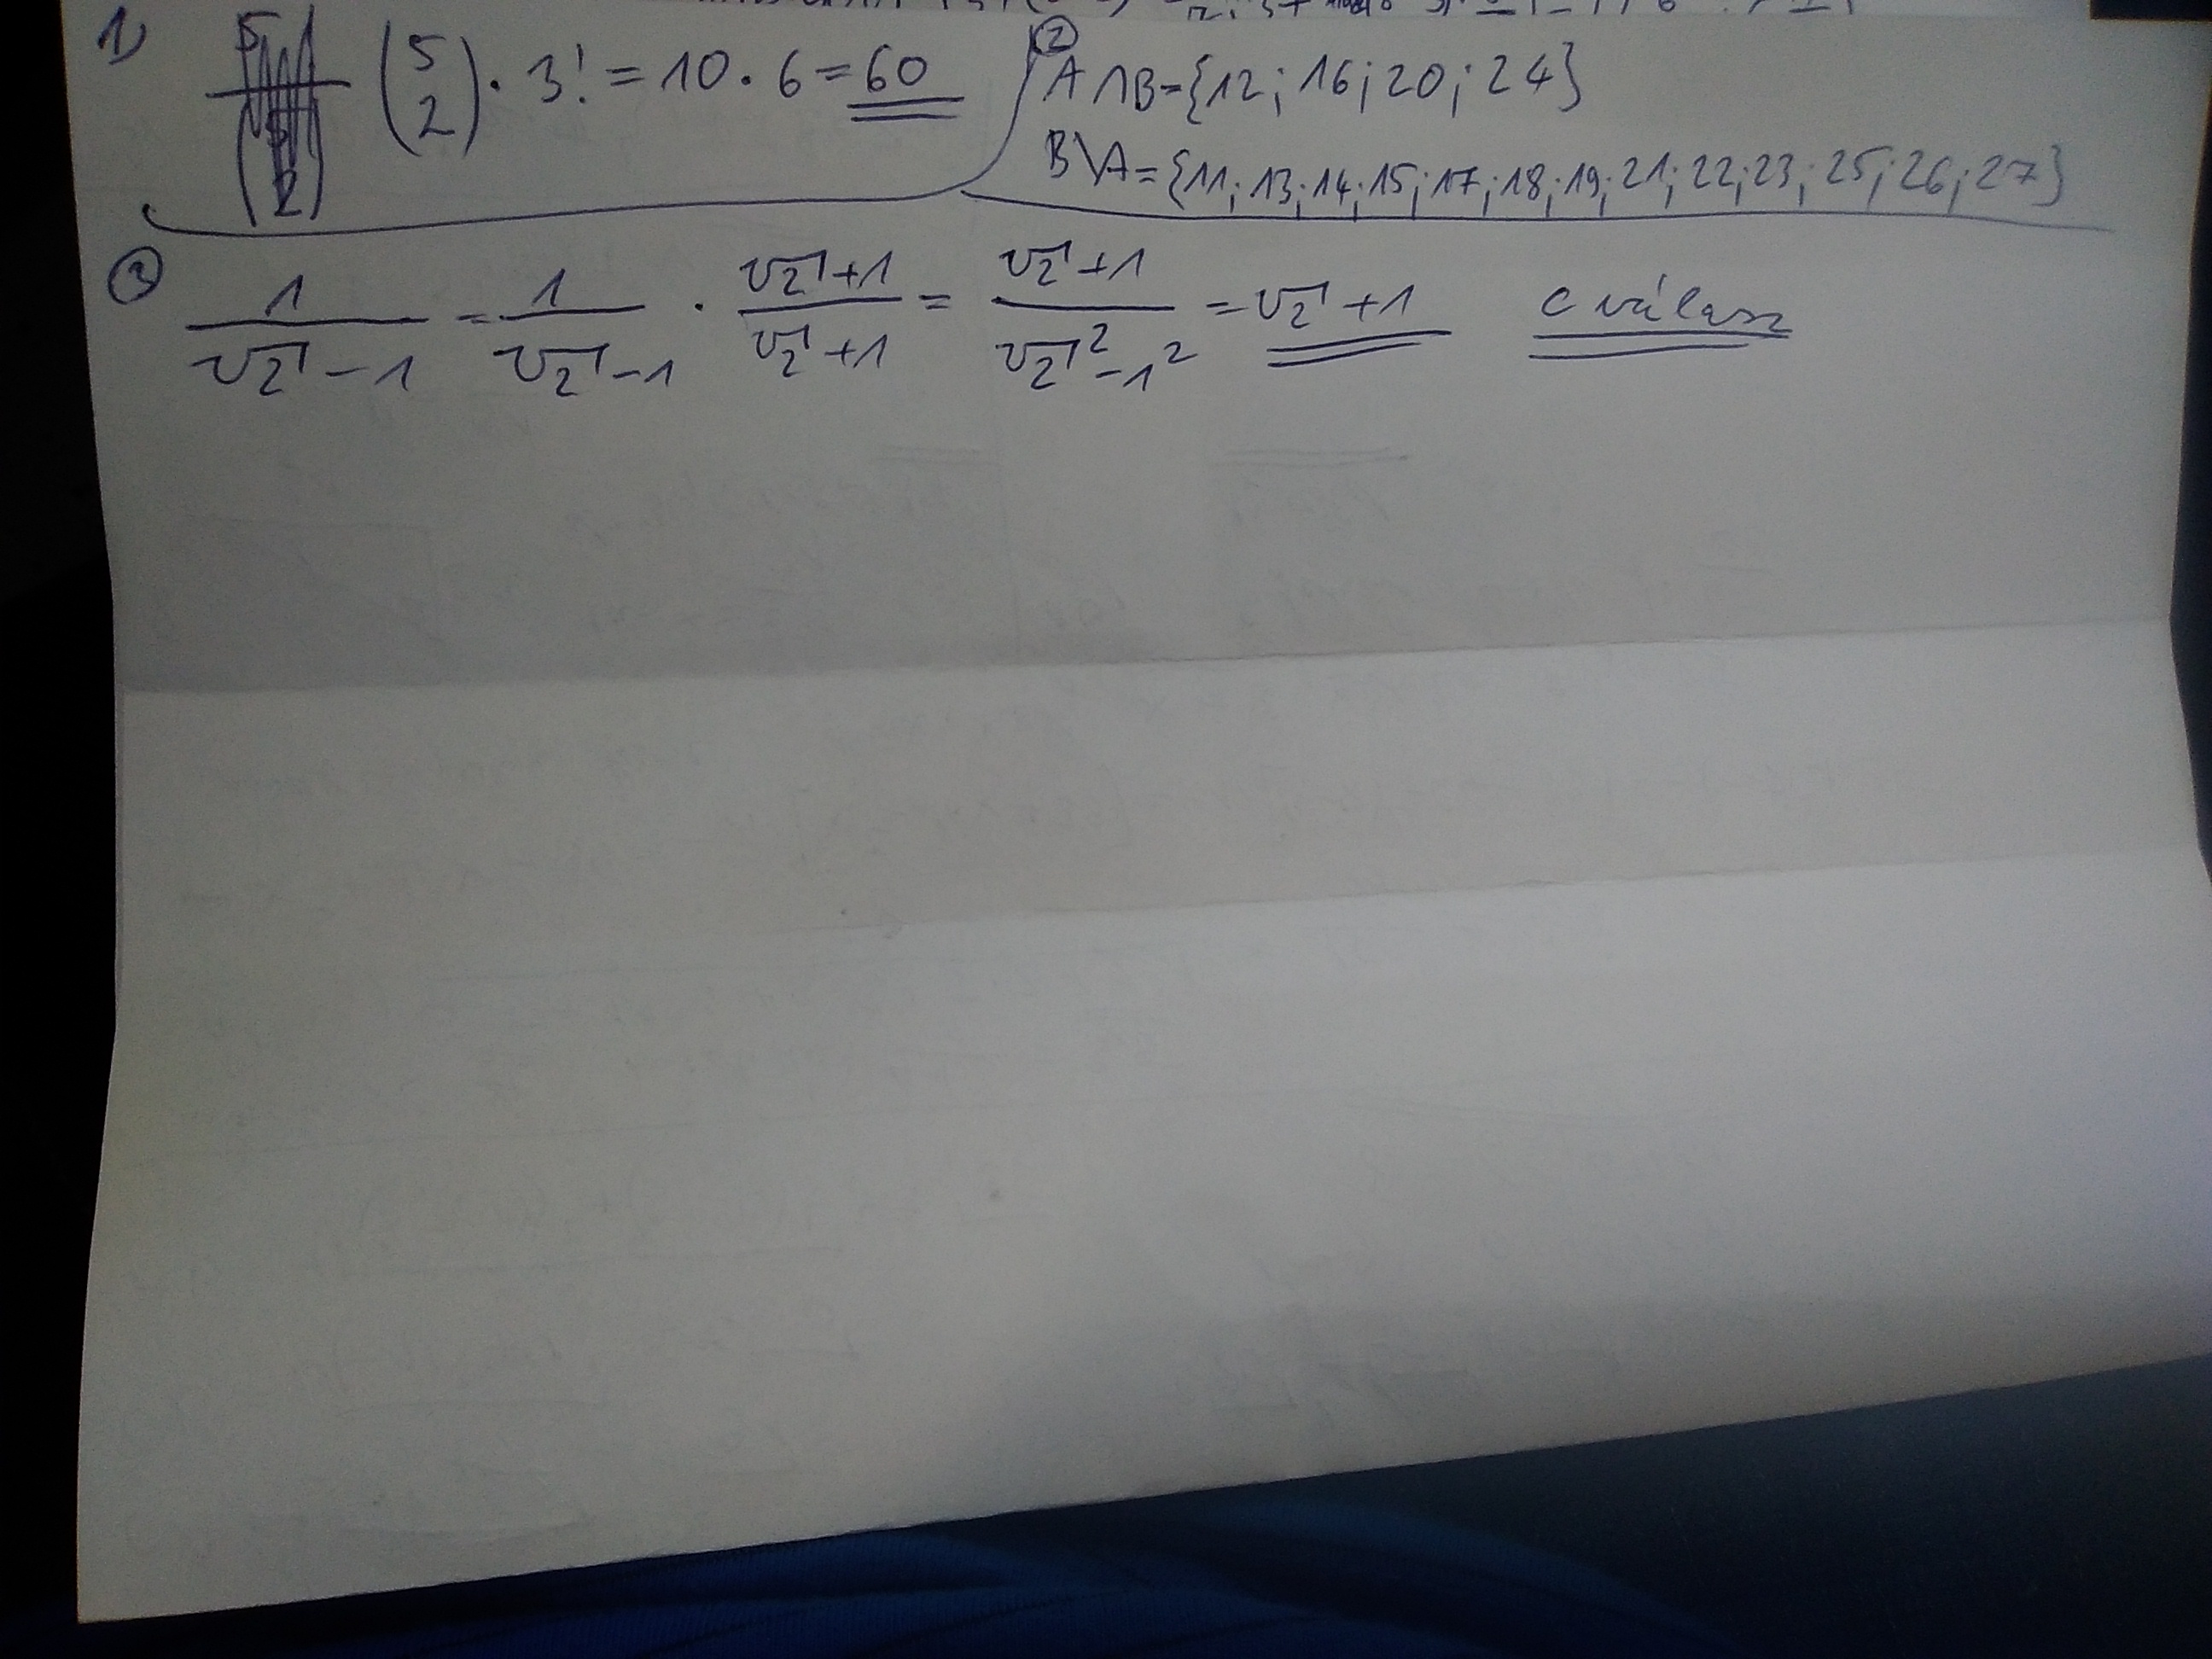 1) (5 2) · 3! = 10 · 6 = 60
② A∩B={12; 16; 20; 24}
B\A={11; 13; 14; 15; 17; 18; 19; 21; 22; 23; 25; 26; 27}
③ 1/(√2 -1) = 1/(√2 -1) · (√2 +1)/(√2 +1) = (√2 +1)/(√2² -1²) = √2 +1 C válasz